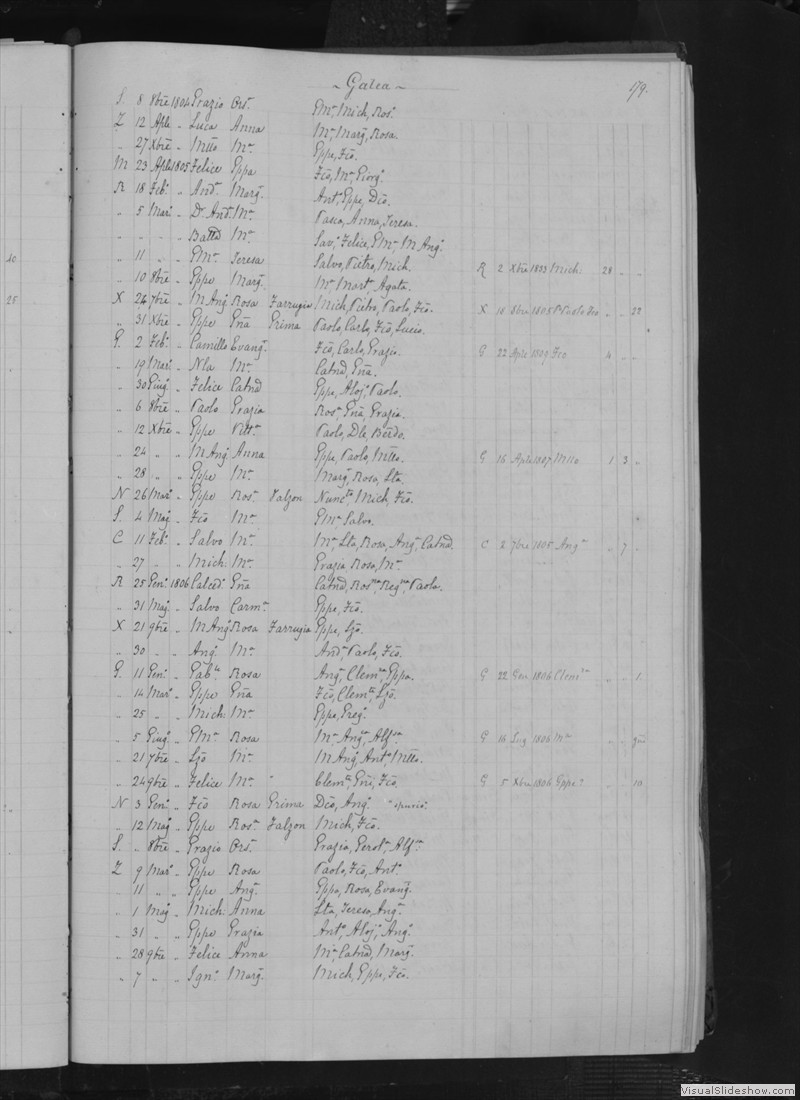 ~ Galea ~
179.
S. 8 8bre 1804 Grazio Ors.a Gma, Mich, Ros.a
Z 12 Aple " Luca Anna Ma, Marg, Rosa.
" 27 Xbre " Mtto Ma Gppe, Fco.
M 23 Aple 1805 Felice Gppa Fco, Ma, Giorg.
R 18 Feb. " And. Marg. Ant, Gppe, Dco.
" 5 Mar. " Dr. And. Ma Pasca, Anna, Teresa.
" " " Batta Ma Sav, Felice, Gma, M. Ang.
40
" 11 " " Gma Teresa Salvo, Pietro, Mich. R 2 Xbre 1833 Mich: 28 " "
" 10 8bre " Gppe Marg. Ma, Mart, Agata.
25
X 24 7bre " M Ang Rosa Farrugia Mich, Pietro, Paolo, Fco. X 16 8bre 1805 " " 22
" 31 Xbre " Gppe Gna Grima Paolo, Carlo, Fco, Lucio.
G. 2 Feb. " Camillo Evang. Fco, Carlo, Grazio. G 22 Aple 1809 Fco 4 " "
" 19 Mar. " Nla Ma Catnd, Gna.
" 30 Giug. " Felice Catnd Gppe, Aloj, Paolo.
" 6 8bre " Paolo Grazia Ros, Gna, Grazia.
" 12 Xbre " Gppe Vitt. Paolo, Dle, Berdo.
" 24 " " M Ang Anna Gppe, Paolo, Mtto. G 16 Aple 1807 Mtto 1 3 "
" 28 " " Gppe Ma Marg, Rosa, Lta.
N 26 Mar. " Gppe Ros. Falzon Nunc, Mich, Fco.
S. 4 Mag. " Fco Ma Gma, Salvo.
C 11 Feb. " Salvo Ma Ma, Lta, Rosa, Ang, Catnd. C 2 7bre 1805 Ang. " 7 "
" 27 " " Mich: Ma Grazia, Rosa, Ma.
R 25 Gen. 1806 Calced. Gna Catnd, Ros, Reg, Paolo.
" 31 Mag. " Salvo Carm. Gppe, Fco.
X 21 9bre " M Ang Rosa Farrugia Gppe, Ljo.
" 30 " " Ang. Ma And, Paolo, Fco.
G. 11 Gen. " Gab. Rosa Ang, Clem, Gppa. G 22 Gen 1806 Clem " " 1.
" 14 Mar. " Gppe Gna Fco, Clem, Ljo.
" 25 " " Mich: Ma Gppe, Greg.
" 5 Giug. " Gma Rosa Ma, Ang, Alf. G 16 Lug 1806 Ma " "
" 21 7bre " Ljo Ma M Ang, Ant, Mtto.
" 24 9bre " Felice Ma " Clem, Gni, Fco. G 5 Xbre 1806 Gppe " " 10
N 3 Gen. " Fco Rosa Grima Dco, Ang. "spurio."
" 12 Mag " Gppe Ros. Falzon Mich, Fco.
S. " 8bre " Grazio Ors. Grazia, Gert, Alf.
Z 9 Mar. " Gppe Rosa Paolo, Fco, Ant.
" 11 " " Gppe Ang. Gppa, Rosa, Evang.
" 1 Mag " Mich: Anna Lta, Teresa, Ang.
" 31 " " Gppe Grazia Ant, Aloj, Ang.
" 28 9bre " Felice Anna Ma, Catnd, Marg.
" 7 " " Ign. Marg. Mich, Gppe, Fco.
VisualSlideshow.com